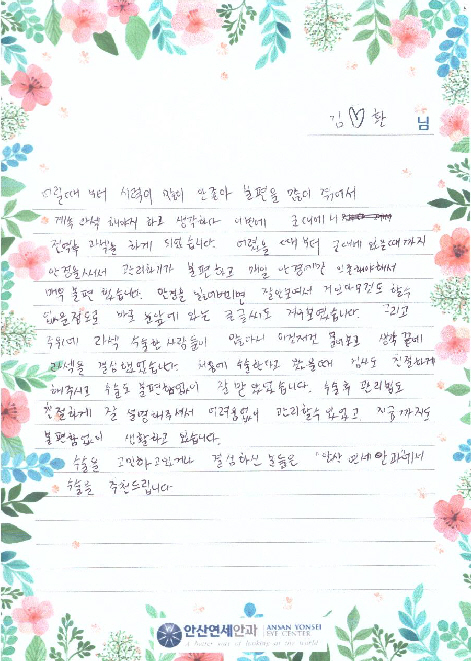 김♡환 님
어릴때 부터 시력이 많이 안좋아 불편을 많이 겪어서
계속 라섹 해야지 하고 생각하다 이번에 군대에서
전역후 라섹을 하게 되었습니다. 어렸을 때부터 군대에 있을때까지
안경을 써서 관리하기가 불편하고 매일 안경에만 의존해야해서
매우 불편 했습니다. 안경을 잃어버리면 잘안보여서 거의 아무것도 할수
없을정도로 바로 눈앞에 있는 큰글씨도 겨우보였습니다. 그리고
주위에 라섹 수술한 사람들이 많다보니 이것저것 물어보고 생각 끝에
라섹을 결심했었습니다. 처음에 수술한다고 왔을때 검사도 친절하게
해주시고 수술도 불편함없이 잘 받았었습니다. 수술후 관리법도
친절하게 잘 설명해주셔서 어려움없이 관리할수 있었고 지금까지도
불편함없이 생활하고 있습니다.
수술을 고민하고있거나 결심하신 분들은 "안산 연세안과"에서
수술을 추천드립니다
안산연세안과 ANSAN YONSEI EYE CENTER
A better way of looking at the world